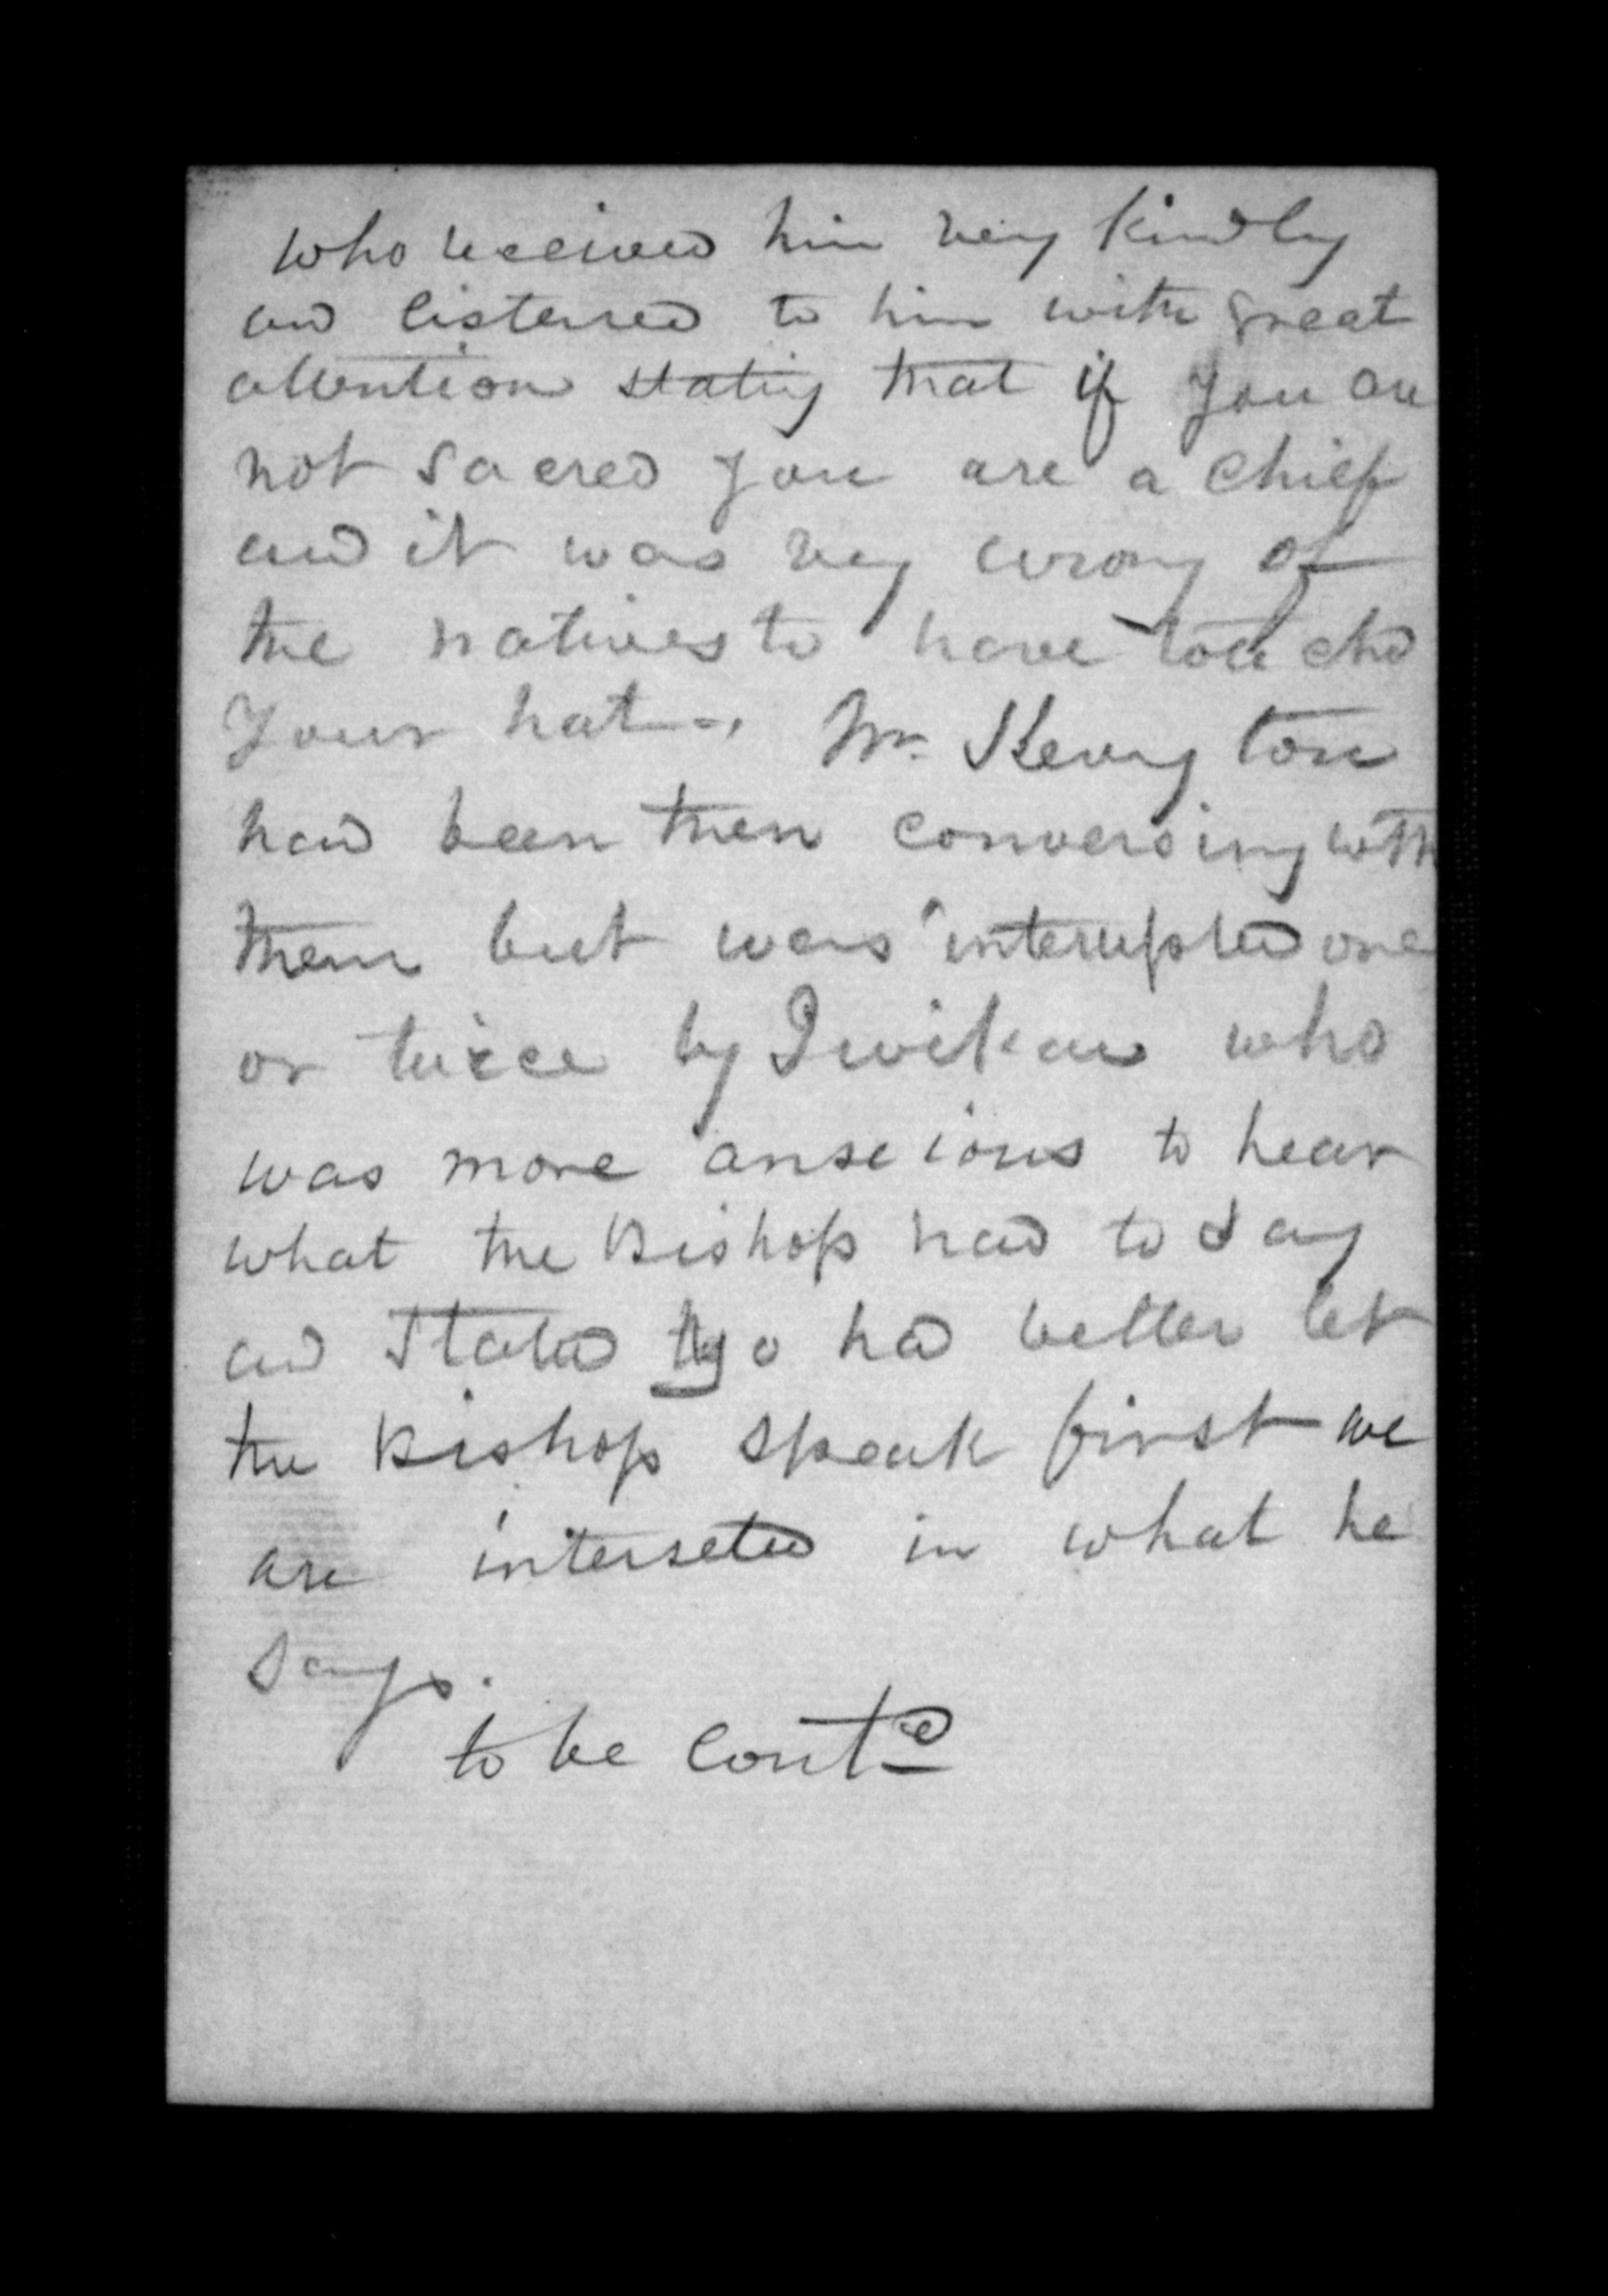 who received him very kindly
and listened to him with great
attention stating that if you are
not sacred you are a chief
and it was very wrong of
the natives to have touched
Your hat -, Mr.
had been then conversing with
them but was interupted one
or twice by Iwikau who
was more anscious to hear
what the Bishop had to say
and Stated had better let
the Bishop speak first we
are interseted in what he
says.
to be Contd